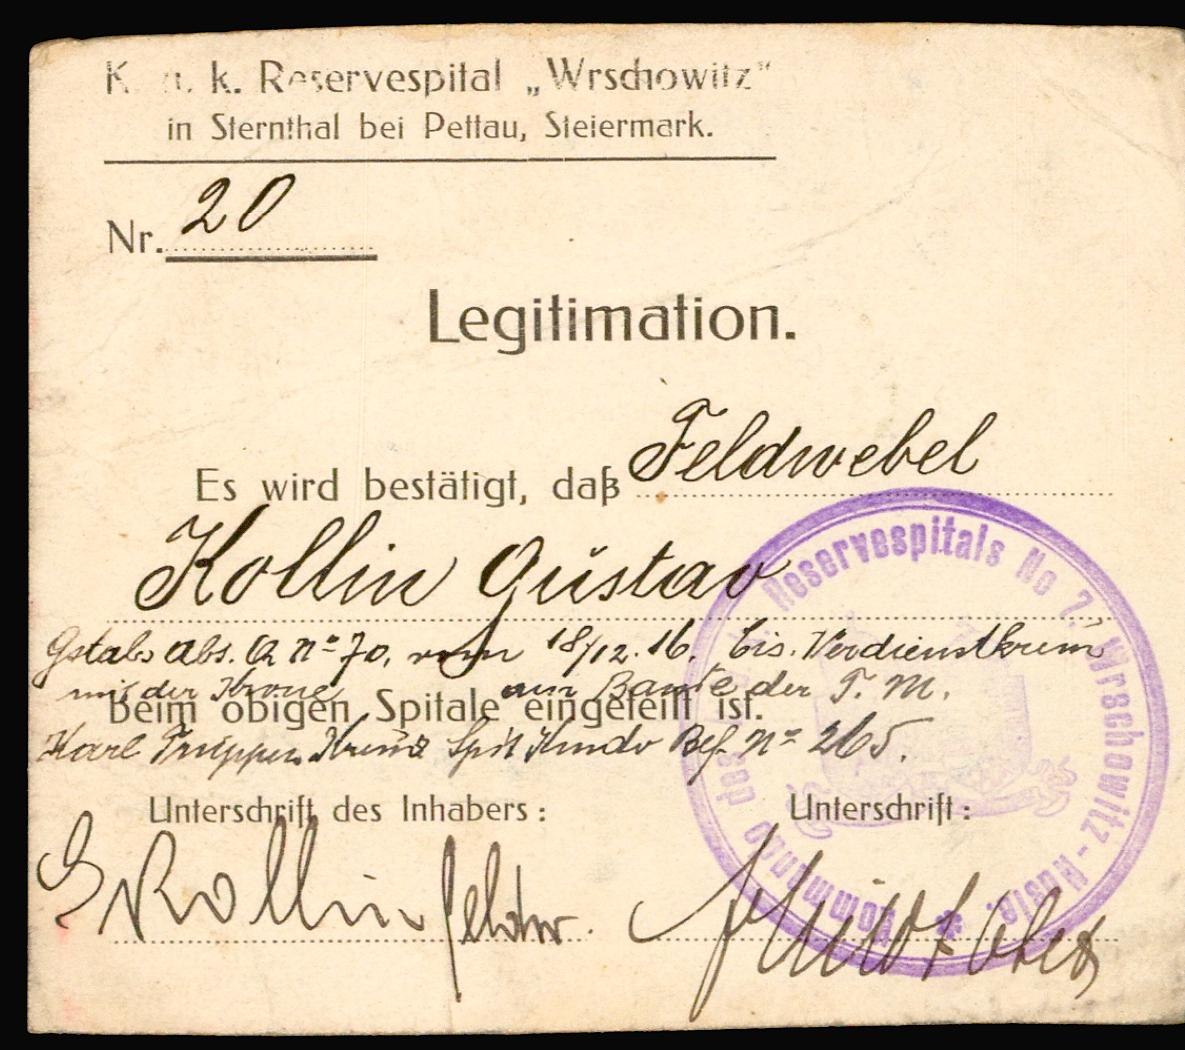 K. u. k. Reservespital „Wrschowitz"
in Sternthal bei Pettau, Steiermark.
Nr. 20
Legitimation.
Es wird bestätigt, daß Feldwebel
Kollin Gustav
Gstabs Abs. Nº 70. vom 18/12.16. Eis. Verdienstkreuz
mit der Krone am Bande der T. M.
beim obigen Spitale eingeteilt ist.
Karl Truppen Kreuz Spit Kmdo Bef. Nº 265.
Unterschrift des Inhabers: Unterschrift:
G Kollin Feldw.
Kommando des Reservespitals No 7. Wrschowitz-Rusle.